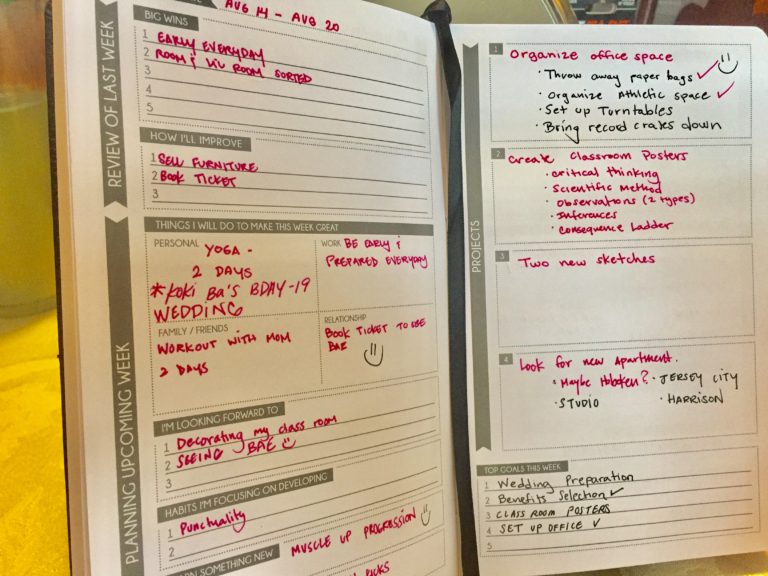 REVIEW OF LAST WEEK
AUG 14 - AUG 20
BIG WINS
1 EARLY EVERYDAY
2 ROOM & LIV ROOM SORTED
3
4
5
HOW I'LL IMPROVE
1 SELL FURNITURE
2 BOOK TICKET
3
PLANNING UPCOMING WEEK
THINGS I WILL DO TO MAKE THIS WEEK GREAT
PERSONAL YOGA -
2 DAYS
*KOKI BA'S BDAY-19
WEDDING
WORK BE EARLY &
PREPARED EVERYDAY
FAMILY / FRIENDS
WORKOUT WITH MOM
2 DAYS
RELATIONSHIP
BOOK TICKET TO SEE
BAE
I'M LOOKING FORWARD TO
1 Decorating my class room
2 SEEING BAE
3
HABITS I'M FOCUSING ON DEVELOPING
1 Punctuality
2
SOMETHING NEW MUSCLE UP PROGRESSION
PROJECTS
1 Organize office space
• Throw away paper bags ✓
• Organize Athletic space ✓
• Set up Turntables
• Bring record crates down
2 Create Classroom Posters
• critical thinking
• Scientific Method
• observations (2 types)
• Inferences
• Consequence Ladder
3 Two new sketches
4 Look for new Apartment.
• Maybe Hoboken? • JERSEY CITY
• STUDIO • HARRISON
TOP GOALS THIS WEEK
1 Wedding Preparation
2 Benefits Selection ✓
3 CLASS ROOM POSTERS
4 SET UP OFFICE ✓
5